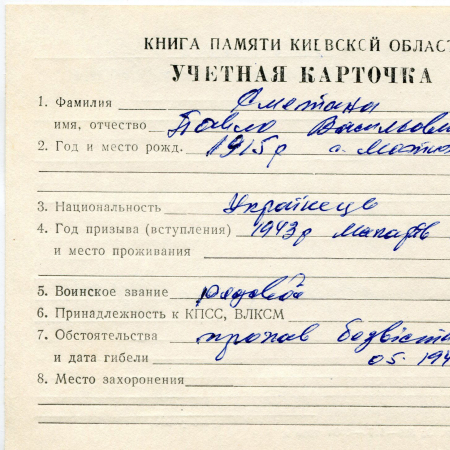 КНИГА ПАМЯТИ КИЕВСКОЙ ОБЛАСТ
УЧЕТНАЯ КАРТОЧКА
1. Фамилия Сметана
имя, отчество Павло Васильови
2. Год и место рожд. 1915р с.
3. Национальность Українець
4. Год призыва (вступления) 1943р Макарів
и место проживания
5. Воинское звание рядовой
6. Принадлежность к КПСС, ВЛКСМ
7. Обстоятельства пропав безвіст
и дата гибели 05. 194
8. Место захоронения